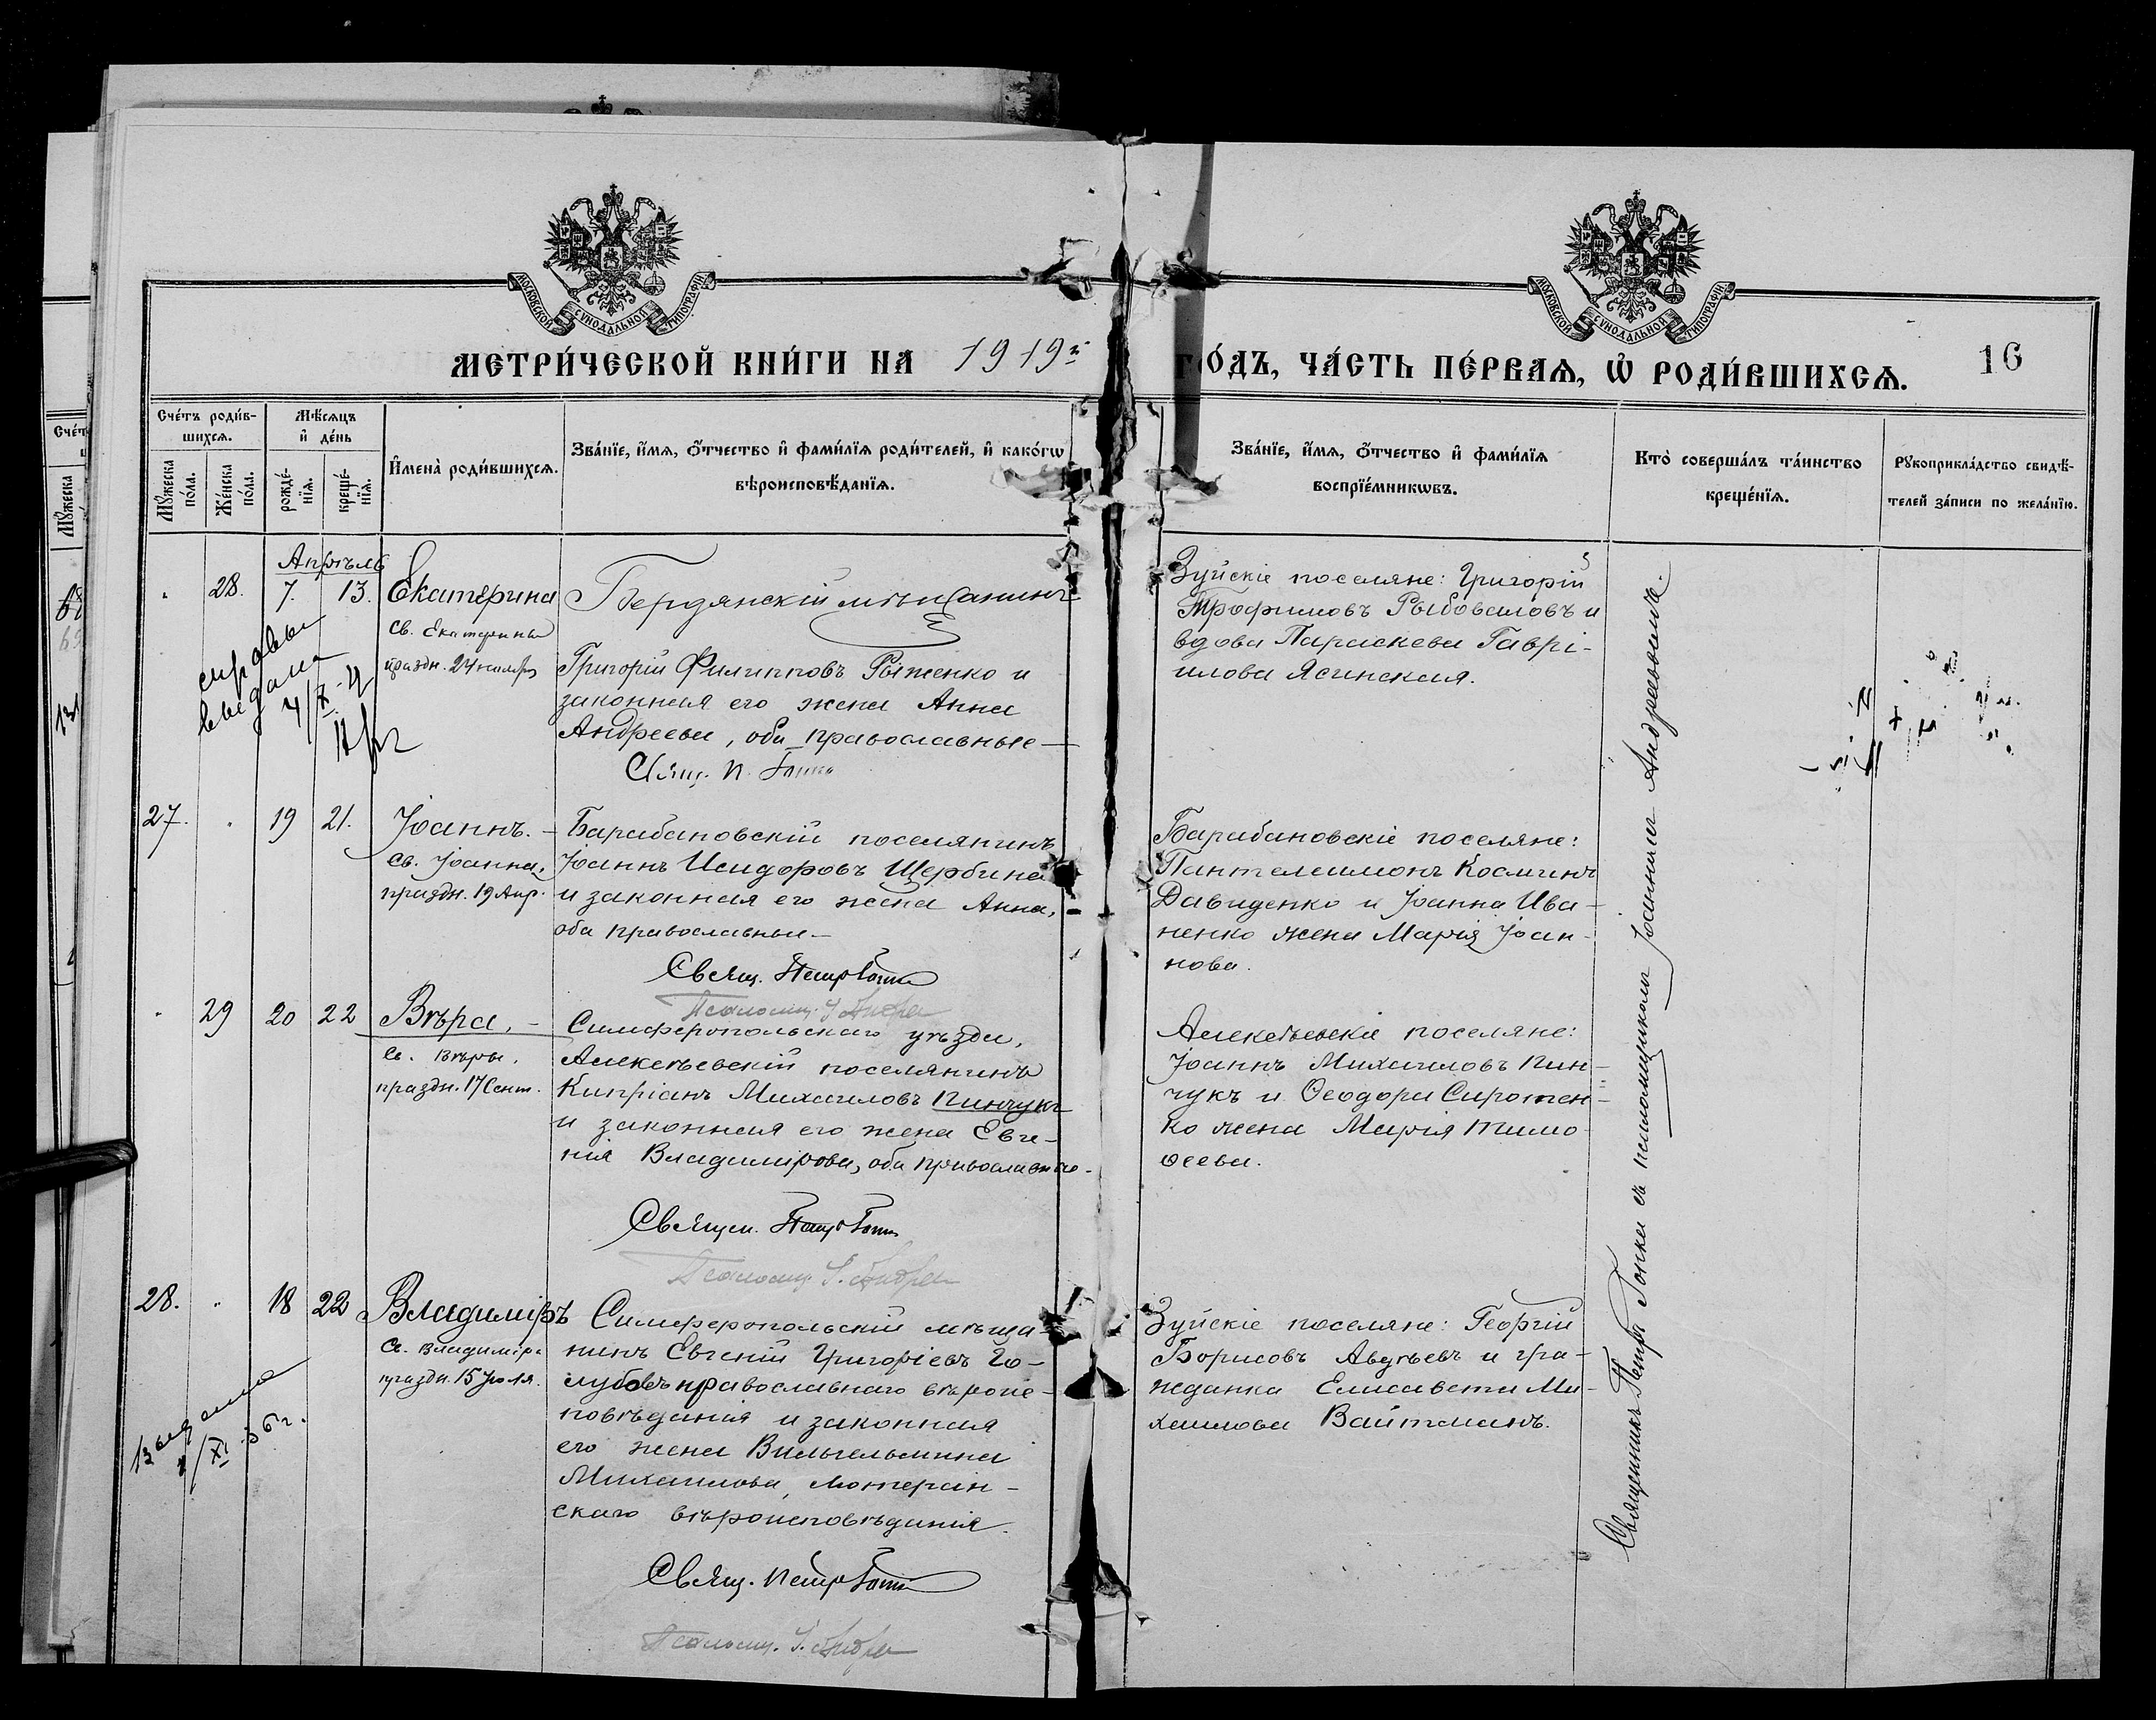 МОСКОВСКОЙ СѴНОДАЛЬНОЙ ТИПОГРАФІИ
МОСКОВСКОЙ СѴНОДАЛЬНОЙ ТИПОГРАФІИ
МЕТРИ́ЧЕСКОЙ КНИ́ГИ НА 1919й ГО́ДЪ, ЧА́СТЬ ПЕ́РВАѦ, Ѡ҆ РОДИ́ВШИХСѦ.
16
Сче́тъ роди́в-
шихсѧ.
Мꙋ́жеска по́ла.
Же́нска по́ла.
Мѣ́сѧцъ
и҆ де́нь
рожде́-
нїѧ.
креще́-
нїѧ.
И҆мена̀ роди́вшихсѧ.
Зва́нїе, и҆́мѧ, ѻ҆́тчество и҆ фами́лїѧ роди́телей, и҆ како́гѡ
вѣроисповѣ́данїѧ.
Зва́нїе, и҆́мѧ, ѻ҆́тчество и҆ фами́лїѧ
воспрїе́мникѡвъ.
Кто̀ соверша́лъ та́инство
креще́нїѧ.
Рꙋкоприкла́дство свидѣ́-
телей за́писи по жела́нїю.
Апрѣль
28. 7. 13. Екатерина
св. Екатерины
праздн. 24 ноября
Бердянскій мѣщанинъ
Григорій Филипповъ Рыженко и
законная его жена Анна
Андреева, оба православные
Свящ. П. Гопка
Зуйскіе поселяне: Григорій
Трофимовъ Рыбоваловъ и
вдова Параскева Гаврі-
илова Ясинская.
справка
выдана
27. 19 21. Іоаннъ. –
св. Іоанна,
праздн. 19 Апр.
Барабановскій поселянинъ
Іоаннъ Исидоровъ Щербина
и законная его жена Анна,
оба православные –
Свящ. Петр Гопка
Псаломщ. І. Андре
Барабановскіе поселяне:
Пантелеимонъ Космичъ
Давиденко и Іоанна Ива-
ненко жена Марія Іоан-
нова.
29 20 22 Вѣра, –
св. Вѣры,
праздн. 17 Сент.
Симферопольскаго уѣзда,
Алексѣевскій поселянинъ
Кипріанъ Михаиловъ Пинчукъ
и законная его жена Евге-
нія Владимірова, оба православные.
Священ. Петр Гопка
Псаломщ. І. Андре
Алексѣевскіе поселяне:
Іоаннъ Михаиловъ Пин-
чукъ и Ѳеодора Сиротен-
ко жена Марія Тимо-
ѳеева.
28. 18 22 Владиміръ
Св. Владиміра
праздн. 15 Іюля.
Симферопольскій мѣща-
нинъ Евгеній Григоріевъ Го-
лубовъ православнаго вѣроис-
повѣданія и законная
его жена Вильгельмина
Михаилова, лютеран-
скаго вѣроисповѣданія.
Свящ. Петр Гопка
Псаломщ. І. Андре
Зуйскіе поселяне: Георгій
Борисовъ Авдѣевъ и гра-
жданка Елисавета Ми-
хаилова Вайтманъ.
выдана
Священникъ Петръ Гопка съ псаломщикомъ Іоанномъ Андреевымъ.